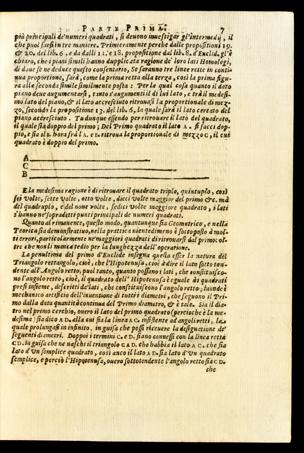 PARTE PRIMA. 7
più principali de' numeri quadrati, si deuono inuestigar gl'intermedij, il
che puoi farsi in tre maniere. Primieramente perche dalle propositioni 19.
& 20. del lib. 6. e da dalli 11. e 18. propositione del lib. 8. d'Euclid. s'è
chiaro, che i piani simili hanno duplicata ragione de' loro lati Homologi,
di due se ne deduce questo consentario, Se saranno tre linee rette in conti
nua proportione, sarà, come la prima retta alla terza, così la prima figu-
ra alla seconda simile similmente posta: Per la qual cosa quanto il dato
piano deue augumentarsi, tanto s'augumenti il di lui lato, e trà il medesi-
mo lato del piano, & il lato accresciuto ritrouisi la proportionale di mez-
zo, secondo la propositione 13. del lib. 6. la quale sarà il lato cercato del
piano accresciuto. Tu dunque essendo per ritrouare il lato del quadrato,
il quale sia doppio del primo; Del Primo quadrato il lato A. si facci dop-
pio, e sia B. hora frà A. e B. ritroua la proportionale di mezzo C, il cui
quadrato è doppio del primo.
A
C
B
E la medesima ragione è di ritrouare il quadrato triplo, quintuplo, così
sei Volte, sette Volte, otto Volte, dieci Volte maggior del primo &c. mà
del quadruplo, e del noue Volte, sedici Volte maggiore quadrato, i lati
s'hanno ne' sopradetti punti principali de numeri quadrati.
Quanto al rimanente, questo modo, quantunque sia Geometrico, e nella
Teorica sia demonstratiuo, nella prattica nientedimeno è sottoposto à mol-
ti errori, particolarmente ne' maggiori quadrati di ritrouarsi dal primo: ol-
tre che non è manco tedioso per la lunghezza dell'operatione.
La penultima del primo d'Euclide insegna questa esser la natura del
Triangolo rettangolo, cioè, che l'Hipotenusa, cioè à dire il lato sotto ten-
dente all'Angolo retto, puol tanto, quanto possono i lati, che constituisco-
no l'angolo retto, cioè, il quadrato dell'Hipotenusa è eguale à i quadrati
presi insieme, descritti de' lati, che constituiscono l'angolo retto, quindi è
mechanico artificio dell'inuentione di tutti i diametri, che seguono il Pri-
mo dalla data quantità continua del Primo diametro, & è tale. Sia il dia-
tro nel primo cerchio, ouero il lato del primo quadrato (perciochè è la me-
desima) sia dico AD, alla cui sia la linea AC. insistente ad angoli retti, la
quale prolongasi in infinito, in guisa che possi riceuere la desiguatione de'
seguenti diametri. Doppoi i termini C, e D, siano connessi con la linea retta
CD, in guisa che ne naschi il triangolo CAD, che habbia il lato AC, che sia
lato d'Vn semplice quadrato, così anco il lato AD, sia lato d'Vn quadrato
semplice, e perciò l'Hipotenusa, ouero sottotendente l'angolo retto sia CD,
che